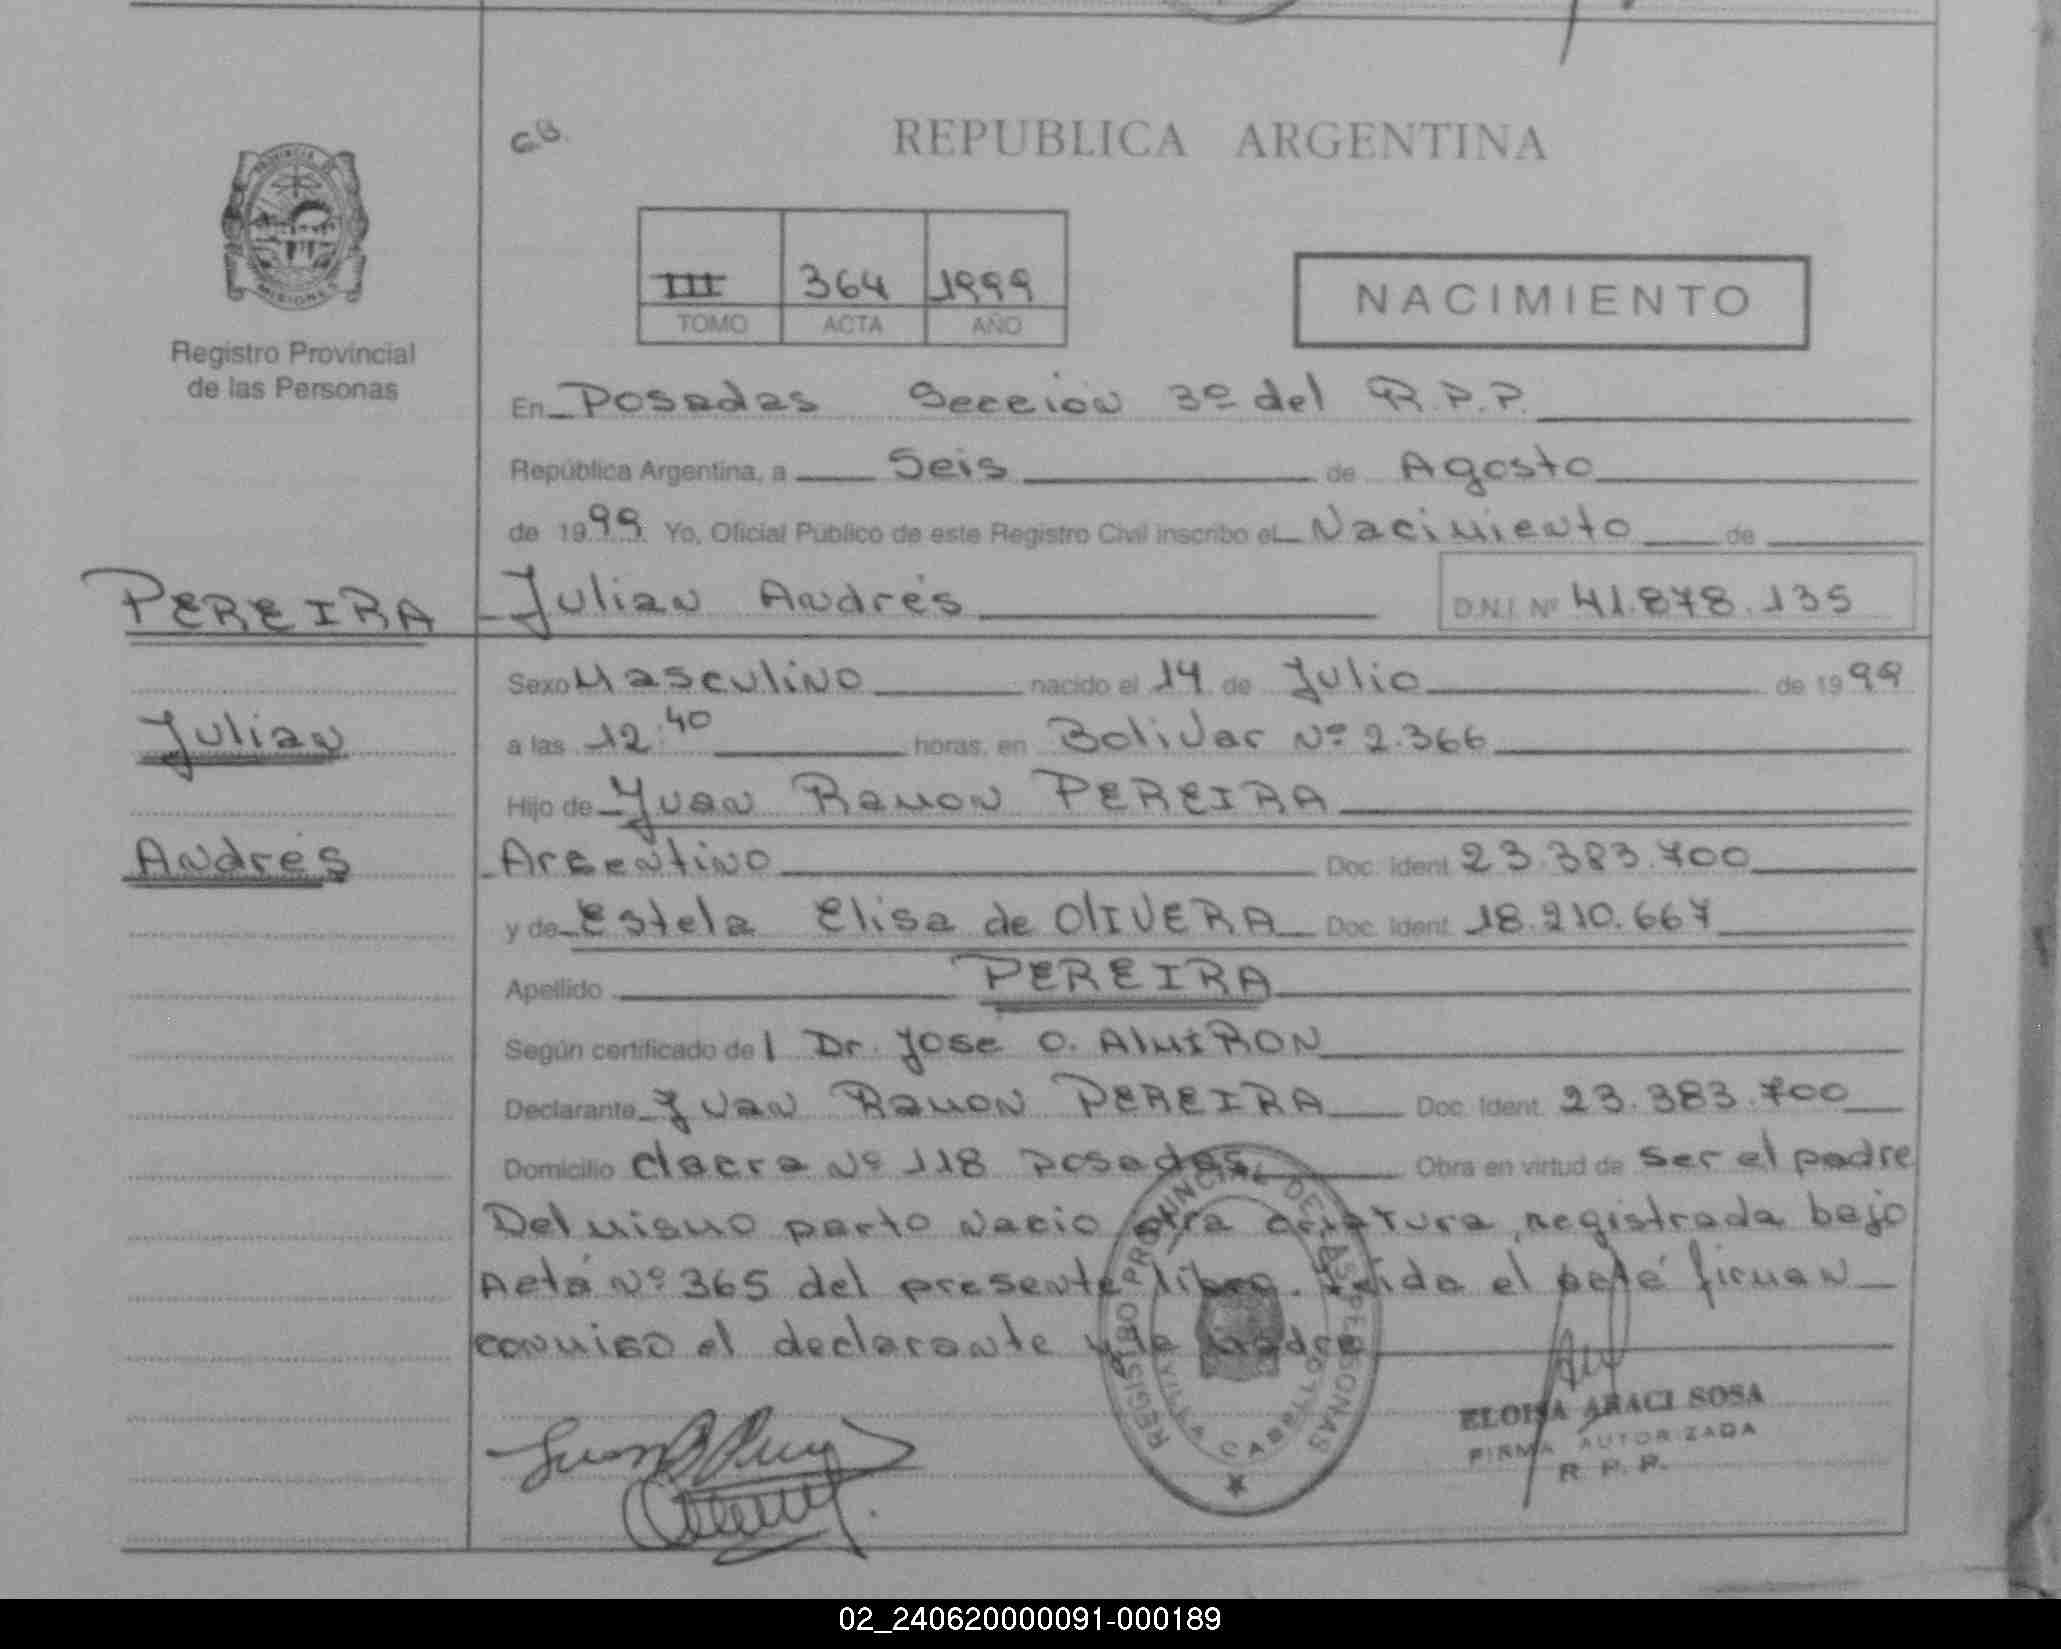 C.B.
REPUBLICA ARGENTINA
PROVINCIA DE
MISIONES
III 364 1999
TOMO ACTA AÑO
NACIMIENTO
Registro Provincial
de las Personas
En Posadas Sección 3º del R.P.P.
República Argentina, a Seis de Agosto
de 1999 Yo, Oficial Público de este Registro Civil inscribo el Nacimiento de
PEREIRA Julian Andrés D.N.I. Nº 41.878.135
Sexo Masculino nacido el 14 de Julio de 1999
Julian a las 12:40 horas, en Bolivar Nº 2.366
Hijo de Juan Ramon PEREIRA
Andrés Argentino Doc. Ident. 23.383.700
y de Estela Elisa de OlIVERA Doc. Ident. 18.210.667
Apellido PEREIRA
Según certificado del Dr. Jose O. AlMIRON
Declarante Juan Ramon PEREIRA Doc. Ident. 23.383.700
Domicilio chacra Nº 118 Posadas Obra en virtud de ser el padre
Del mismo parto nacio otra criatura, registrada bajo
Acta Nº 365 del presente libro. Leida el acta firman
conmigo el declarante y la madre
REGISTRO PROVINCIAL DE LAS PERSONAS
ELOISA ARACI SOSA
FIRMA AUTORIZADA
R. P. P.
02_240620000091-000189